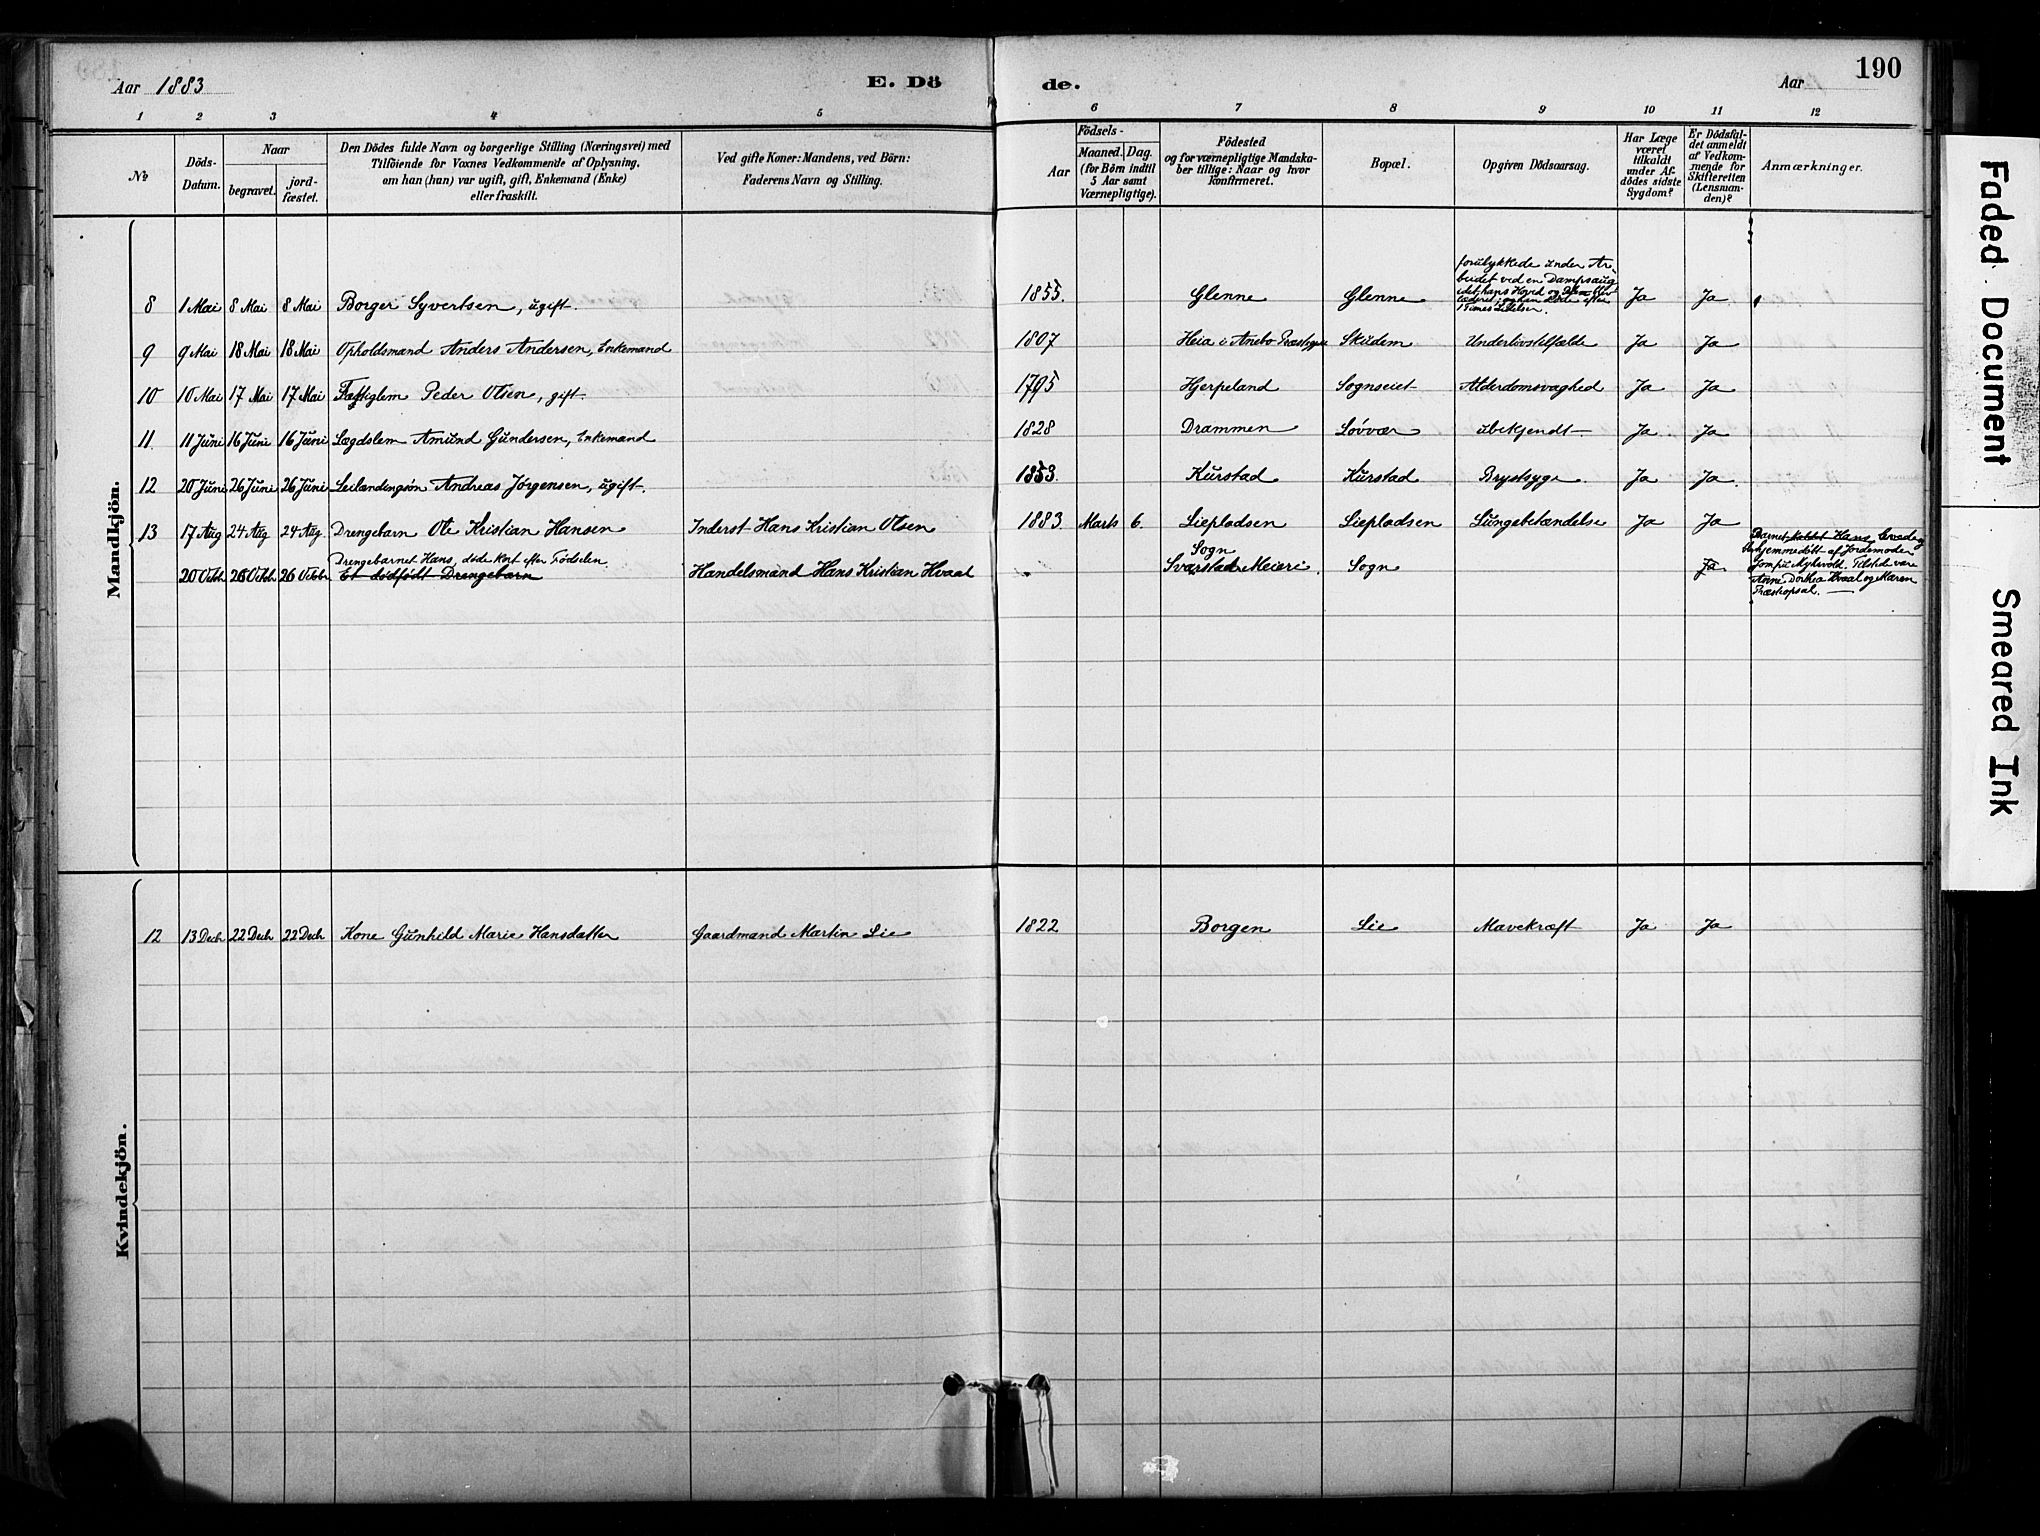 Aar 1883
E. Dö
de.
Aar
190
1 2 3 4 5 6 7 8 9 10 11 12
No
Döds-
Datum.
Naar
begravet.
jord-
fæstet.
Den Dödes fulde Navn og borgerlige Stilling (Næringsvei) med
Tilföiende for Voxnes Vedkommende af Oplysning,
om han (hun) var ugift, gift, Enkemand (Enke)
eller fraskilt.
Ved gifte Koner: Mandens, ved Börn:
Faderens Navn og Stilling.
Födsels-
Aar
Maaned. Dag.
(for Börn indtil
5 Aar samt
Værnepligtige).
Födested
og for værnepligtige Mandska-
ber tillige: Naar og hvor
konfirmeret.
Bopæl.
Opgiven Dödsaarsag.
Har Læge
været
tilkaldt
under Af-
dödes sidste
Sygdom?
Er Dödsfal-
det anmeldt
af Vedkom-
mende for
Skifteretten
(Lensman-
den)?
Anmærkninger.
Mandkjön.
8 1 Mai 8 Mai 8 Mai Borger Syvertsen, ugift. 1855. Glenne Glenne
forulykkede under Ar-
beidet ved en Dampsaug
idet hans Hoved og
og han døde efter
1 Times Lidelser.
Ja Ja
9 9 Mai 18 Mai 18 Mai Opholdsmand Anders Andersen, Enkemand 1807 Heia i Anebo Skudem Underlivstilfælde Ja Ja
10 10 Mai 17 Mai 17 Mai Fattiglem Peder Olsen, gift. 1795 Hjerpeland Sognseiet Alderdomsvaghed Ja Ja
11. 11 Juni 16 Juni 16 Juni Lægdslem Amund Gundersen, Enkemand 1828 Drammen Løvvær ubekjendt Ja Ja
12 20 Juni 26 Juni 26 Juni Leilændingsøn Andreas Jørgensen, ugift. 1853. Kurstad Kurstad Brystsyge. Ja Ja.
13 17 Aug 24 Aug 24 Aug. Drengebarn Ole Kristian Hansen Inderst Hans Kristian Olsen 1883 Marts 6. Liepladsen Liepladsen Lungebetændelse Ja Ja
Drengebarnet Hans, døde kort efter Fødselen.
20 Octbr 26 Octbr 26 Octbr Et dødfødt Drengebarn Handelsmand Hans Kristian Hvaal
Sogn
Svarstad Meieri. Sogn Ja.
Barnet kaldet Hans, levede og
blev hjemmedøbt af Jordemoder
Tilstede vare
Anne Dorthea Hvaal og Maren
Kvindekjön.
12 13 Decb 22 Decb 22 Decb Kone Gunhild Marie Hansdatter Gaardmand Martin Lie 1822 Borgen Lie Mavekræft Ja Ja
Faded Document
Smeared Ink